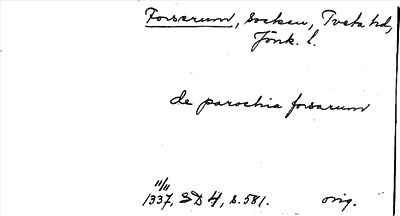 Forserum, socken, Tveta hd,
Jönk. l.
de parochia forsarum
11/11
1337, SD 4, s. 581. orig.